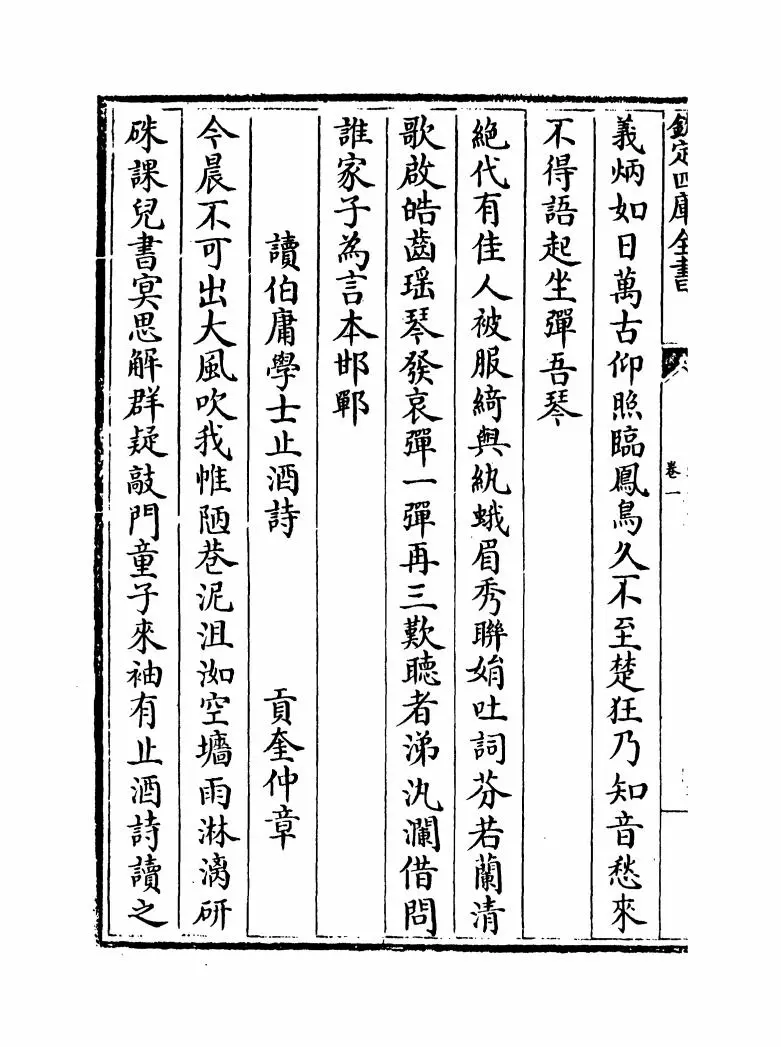 欽定四庫全書
卷一
義炳如日萬古仰照臨鳳鳥久不至楚狂乃知音愁來
不得語起坐彈吾琴
絶代有佳人被服綺與紈蛾眉秀聯娟吐詞芬若蘭清
歌啟皓齒瑶琴發哀彈一彈再三歎聽者涕汍瀾借問
誰家子為言本邯鄲
讀伯庸學士止酒詩　貢奎仲章
今晨不可出大風吹我帷陋巷泥沮洳空墻雨淋漓研
硃課兒書㝠思解群疑敲門童子來袖有止酒詩讀之